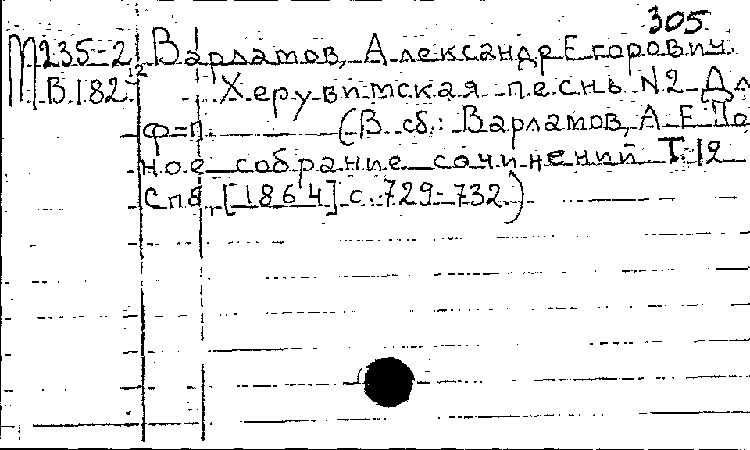 305
М235-2 Варламов, Александр Егорович.
В.182 Херувимская песнь N2 Дл
ф=п. (В сб.: Варламов, А. Е. По
ное собрание сочинений Т. 12
Спб, [1864] с. 729-732.)